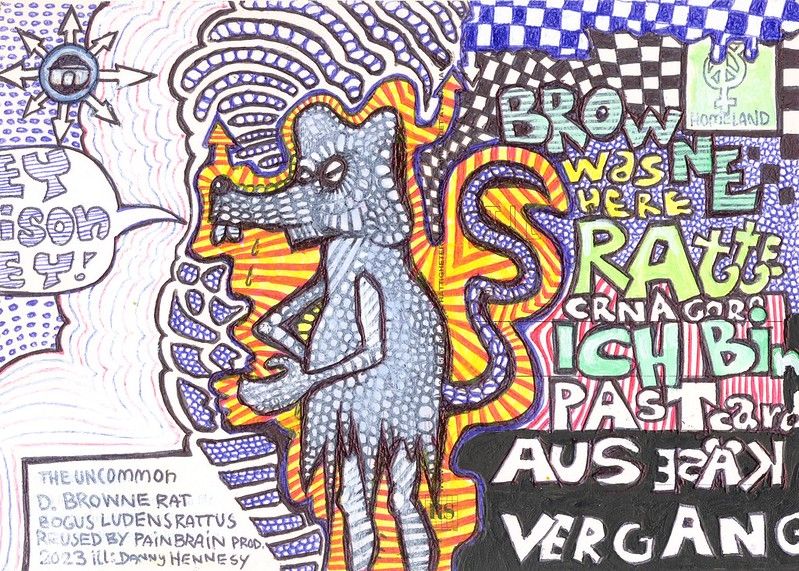 EY
ison
EY!
HOMELAND
BROWNE
was
HERE
RAtte
CRNAGORA
ICH Bin
PASTcard
AUS KÄSE
VERGANG
THE UNCOMMON
D. BROWNE RAT
BOGUS LUDENS RATTUS
REUSED BY PAINBRAIN PROD.
2023 ill: DANNY HENNESY